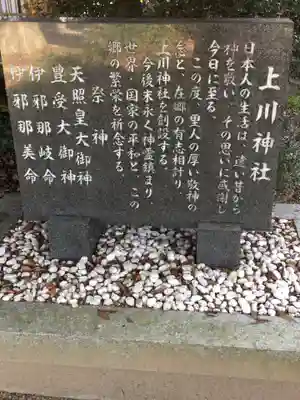 上川神社
日本人の生活は、遠い昔から
神を敬い、その思いに感謝し
今日に至る。
この度、里人の厚い敬神の
念と、在郷の有志相計り
上川神社を創設する。
今後末永く神霊鎮まり
世界・国家の平和と、この
郷の繁栄を祈念する。
祭神
天照皇大御神
豊受大御神
伊邪那岐命
伊邪那美命